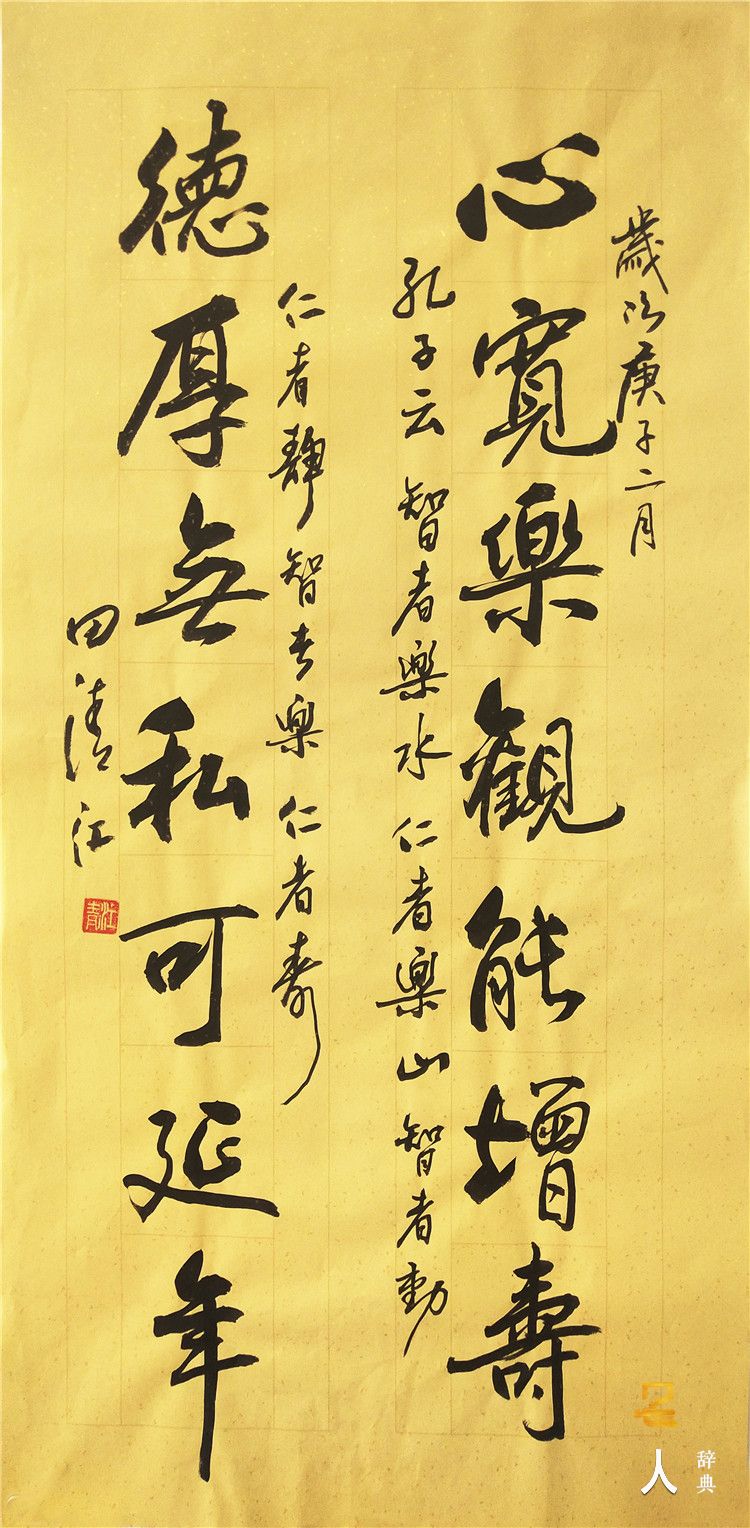 歲次庚子二月
心寬樂觀能增壽
孔子云智者樂水仁者樂山智者動
仁者靜智者樂仁者壽
德厚無私可延年
田清江
名人
辞典